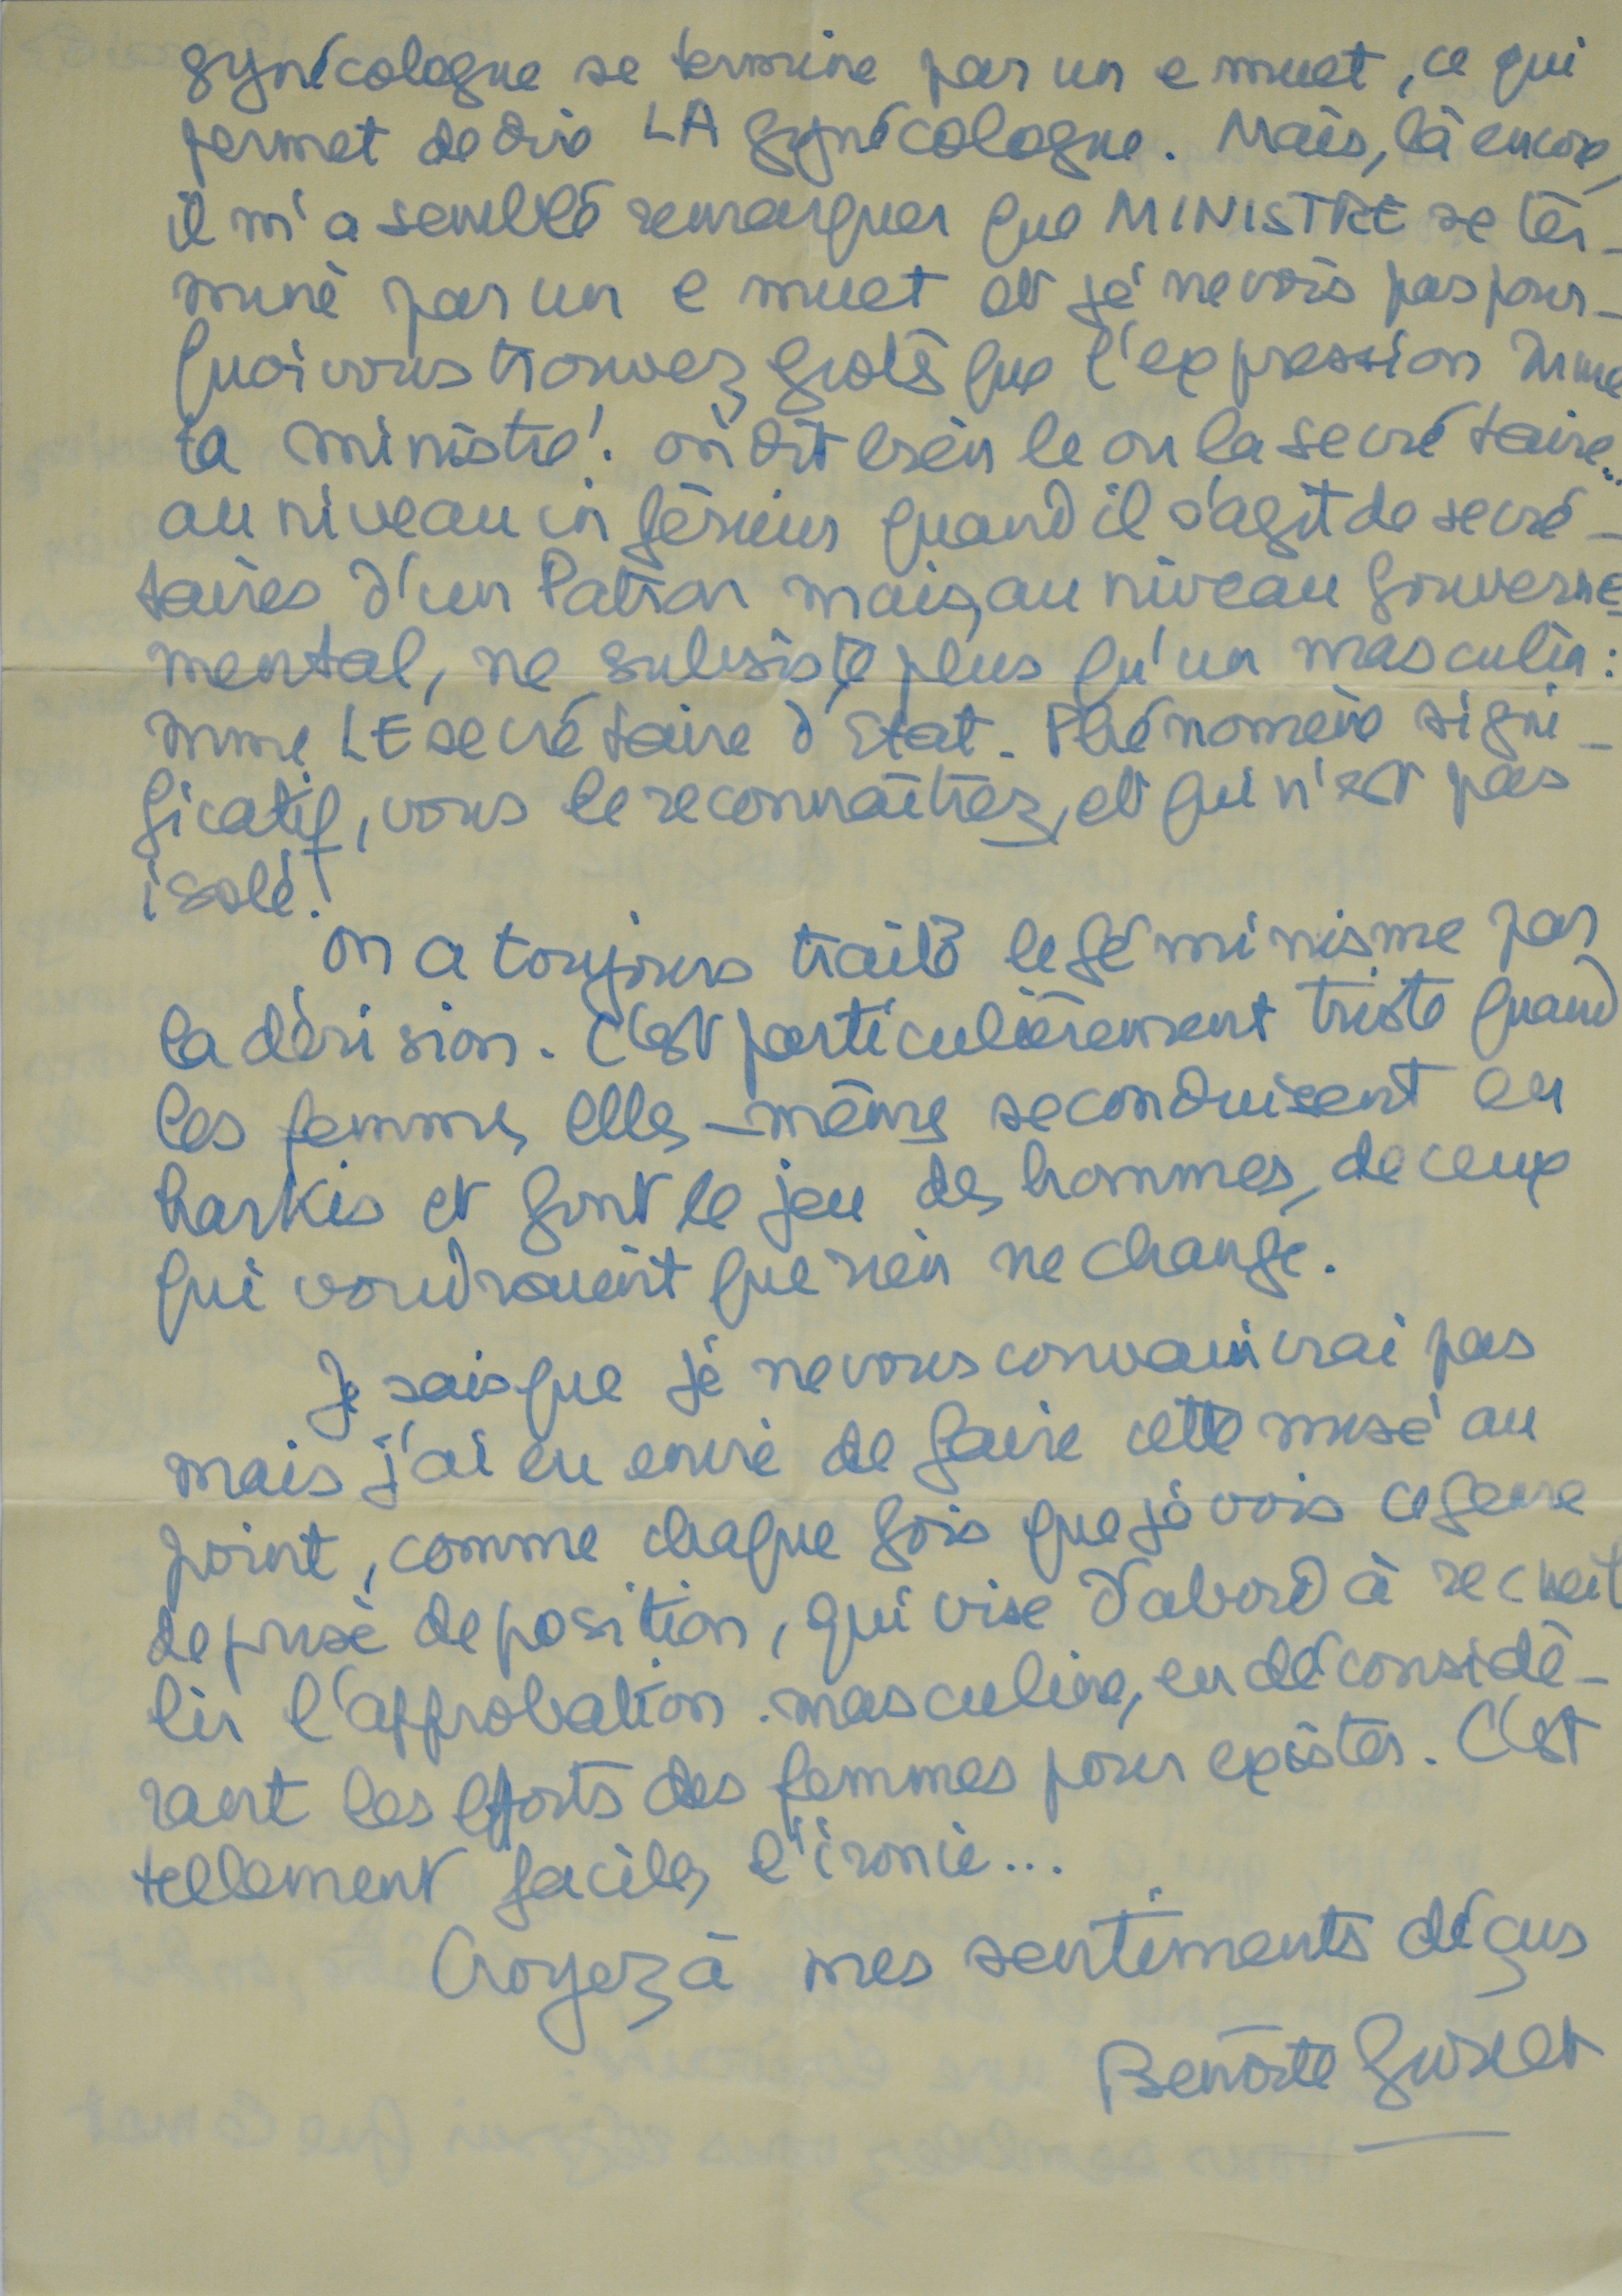 gynécologue se termine par un e muet, ce qui
permet de dire LA gynécologue. Mais, là encore,
il m'a semblé remarquer que MINISTRE se ter-
mine par un e muet et je ne vois pas pour-
quoi vous trouvez que l'expression Mme
la ministre! on dit bien le ou la secrétaire..
au niveau inférieur quand il s'agit de secré-
taires d'un Patron mais, au niveau gouverne-
mental, ne subsiste plus qu'un masculin:
Mme LE secrétaire d'Etat. Phénomène signi-
ficatif, vous le reconnaîtrez, et qui n'est pas
isolé!
on a toujours traité le féminisme par
la dérision. C'est particulièrement triste quand
les femmes elles-mêmes se conduisent en
harkis et font le jeu des hommes, de ceux
qui voudraient que rien ne change.
Je sais que je ne vous convaincrai pas
mais j'ai eu envie de faire cette mise au
point, comme chaque fois que je vois ce genre
de prise de position, qui vise d'abord à recueil
lir l'approbation masculine, en déconsidé-
rant les efforts des femmes pour exister. C'est
tellement facile, l'ironie...
Croyez à mes sentiments déçus
Benoîte Groult